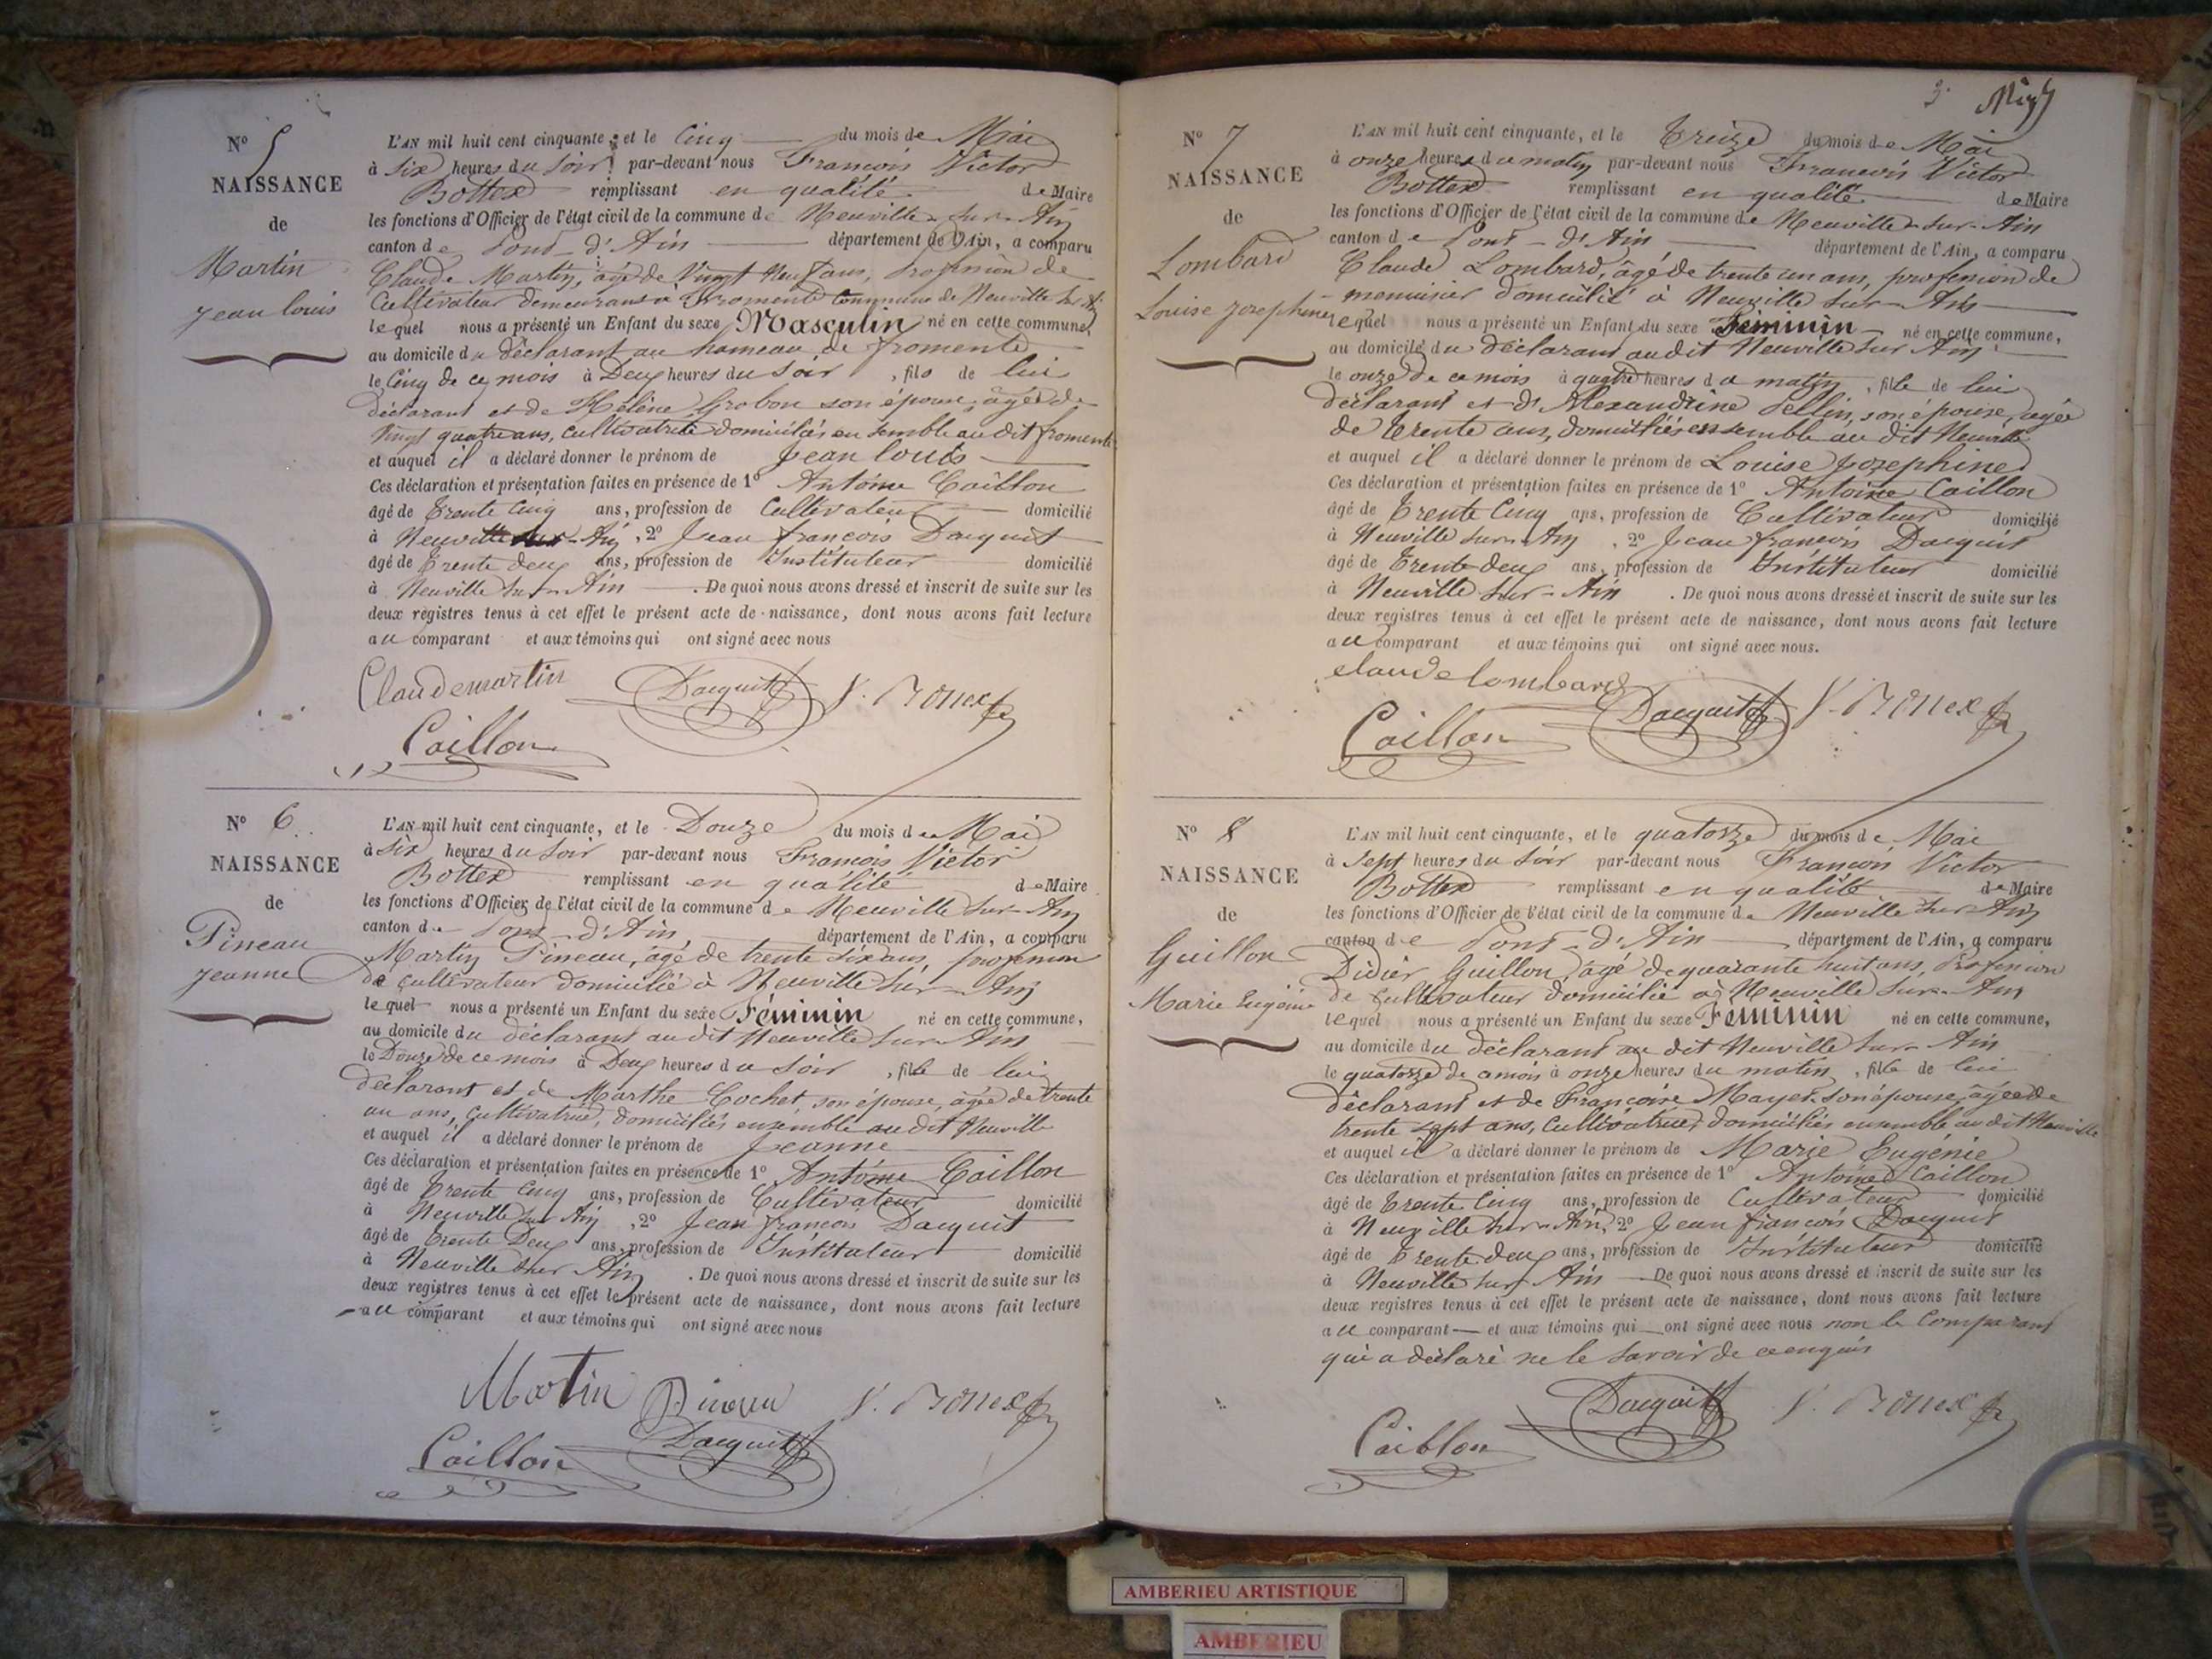 N° 5
NAISSANCE
de
Martin
Jean louis
L'AN mil huit cent cinquante, et le Cinq du mois de Mai
à Six heures du Soir, par-devant nous François Victor
Bottex remplissant en qualité de Maire
les fonctions d'Officier de l'état civil de la commune de Neuville-sur-Ain
canton de Pont-d'Ain département de l'Ain, a comparu
Claude Martin, âgé de Vingt Neuf ans, profession de
Cultivateur demeurant à Fromente Commune de Neuville sur Ain
lequel nous a présenté un Enfant du sexe Masculin né en cette commune,
au domicile du déclarant au hameau de fromente
le Cinq de ce mois à Deux heures du Soir, fils de lui
déclarant et de Hélène Grobon son épouse, âgée de
Vingt quatre ans, cultivatrice domiciliés ensemble au dit fromente
et auquel il a déclaré donner le prénom de Jean louis
Ces déclaration et présentation faites en présence de 1° Antoine Caillon
âgé de Trente Cinq ans, profession de Cultivateur domicilié
à Neuville sur-Ain, 2° Jean françois Dacquit
âgé de Trente deux ans, profession de Instituteur domicilié
à Neuville sur-Ain. De quoi nous avons dressé et inscrit de suite sur les
deux registres tenus à cet effet le présent acte de naissance, dont nous avons fait lecture
au comparant et aux témoins qui ont signé avec nous
Claudemartin Dacquit V. Bottex
Caillon
N° 6
NAISSANCE
de
Pineau
Jeanne
L'AN mil huit cent cinquante, et le Douze du mois de Mai
à Six heures du Soir par-devant nous François Victor
Bottex remplissant en qualité de Maire
les fonctions d'Officier de l'état civil de la commune de Neuville sur-Ain
canton de Pont-d'Ain département de l'Ain, a comparu
Martin Pineau, âgé de trente six ans, profession
de cultivateur domicilié à Neuville sur-Ain
lequel nous a présenté un Enfant du sexe Féminin né en cette commune,
au domicile du déclarant au dit Neuville sur-Ain
le Douze de ce mois à Deux heures du Soir, fille de lui
déclarant et de Marthe Cochet, son épouse, âgée de trente
un ans, cultivatrice, domiciliés ensemble au dit Neuville
et auquel il a déclaré donner le prénom de Jeanne
Ces déclaration et présentation faites en présence de 1° Antoine Caillon
âgé de Trente Cinq ans, profession de Cultivateur domicilié
à Neuville sur Ain, 2° Jean françois Dacquit
âgé de Trente Deux ans, profession de Instituteur domicilié
à Neuville sur Ain. De quoi nous avons dressé et inscrit de suite sur les
deux registres tenus à cet effet le présent acte de naissance, dont nous avons fait lecture
au comparant et aux témoins qui ont signé avec nous
Martin Pineau V. Bottex
Caillon Dacquit
3
N° 7
NAISSANCE
de
Lombard
Louise Josephine
L'AN mil huit cent cinquante, et le Treize du mois de Mai
à onze heures du matin par-devant nous François Victor
Bottex remplissant en qualité de Maire
les fonctions d'Officier de l'état civil de la commune de Neuville-sur-Ain
canton de Pont-d'Ain département de l'Ain, a comparu
Claude Lombard, âgé de trente un ans, profession de
menuisier domicilié à Neuville sur-Ain
lequel nous a présenté un Enfant du sexe Féminin né en cette commune,
au domicile du déclarant au dit Neuville sur Ain,
le onze de ce mois à quatre heures du matin, fille de lui
déclarant et d'Alexandrine Pellin, son épouse, âgée
de Trente ans, domiciliés ensemble au dit Neuville
et auquel il a déclaré donner le prénom de Louise Josephine
Ces déclaration et présentation faites en présence de 1° Antoine Caillon
âgé de Trente Cinq ans, profession de Cultivateur domicilié
à Neuville sur-Ain, 2° Jean françois Dacquit
âgé de Trente deux ans, profession de Instituteur domicilié
à Neuville sur-Ain. De quoi nous avons dressé et inscrit de suite sur les
deux registres tenus à cet effet le présent acte de naissance, dont nous avons fait lecture
au comparant et aux témoins qui ont signé avec nous.
claude lombard
Caillon Dacquit V. Bottex
N° 8
NAISSANCE
de
Guillon
Marie Eugénie
L'AN mil huit cent cinquante, et le quatorze du mois de Mai
à Sept heures du Soir par-devant nous François Victor
Bottex remplissant en qualité de Maire
les fonctions d'Officier de l'état civil de la commune de Neuville sur-Ain
canton de Pont-d'Ain département de l'Ain, a comparu
Didier Guillon, âgé de quarante huit ans, profession
de Cultivateur domicilié à Neuville sur-Ain
lequel nous a présenté un Enfant du sexe Féminin né en cette commune,
au domicile du déclarant au dit Neuville sur-Ain
le quatorze de ce mois à onze heures du matin, fille de lui
déclarant et de Françoise Mayet son épouse, âgée de
trente sept ans, cultivatrice, domiciliés ensemble au dit Neuville
et auquel il a déclaré donner le prénom de Marie Eugénie
Ces déclaration et présentation faites en présence de 1° Antoine Caillon
âgé de Trente Cinq ans, profession de Cultivateur domicilié
à Neuville sur-Ain, 2° Jean françois Dacquit
âgé de Trente deux ans, profession de Instituteur domicilié
à Neuville sur Ain De quoi nous avons dressé et inscrit de suite sur les
deux registres tenus à cet effet le présent acte de naissance, dont nous avons fait lecture
au comparant et aux témoins qui ont signé avec nous non le Comparant
qui a déclaré ne le savoir de ce enquis
Caillon Dacquit V. Bottex
AMBERIEU ARTISTIQUE
AMBERIEU